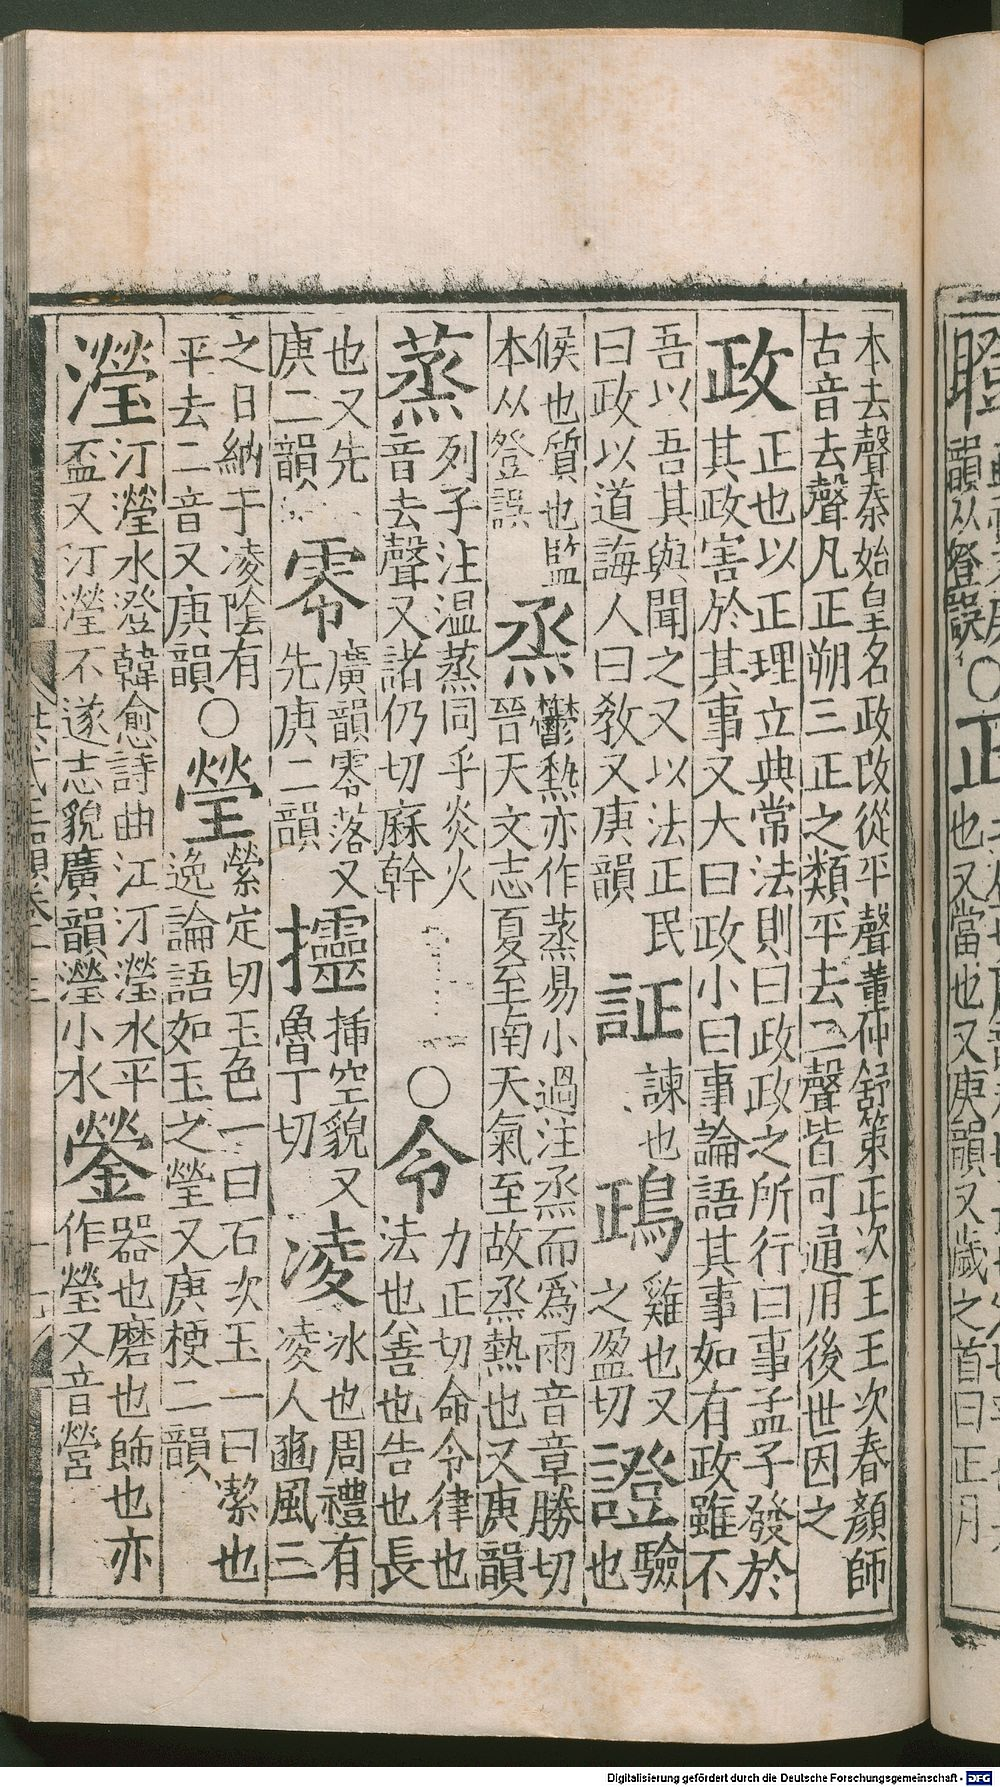 本去聲秦始皇名政改從平聲董仲舒策正次王王次春顏師
古音去聲凡正朔三正之類平去二聲皆可通用後世因之
政 正也以正理立典常法則曰政政之所行曰事孟子發於
其政害於其事又大曰政小曰事論語其事如有政雖不
吾以吾其與聞之又以法正民 証 諫也 鴊 雞也又 證 驗
曰政以道誨人曰敎又庚韻 之盈切 也
候也質也監 烝 鬱熱亦作蒸易小過注烝而為雨音章勝切
本从登誤 晉天文志夏至南天氣至故烝熱也又庚韻
蒸 列子注温蒸同乎炎火 ○令 力正切命令律也
音去聲又諸仍切麻幹 法也善也告也長
也又先 零 廣韻零落又 㩕 揷空貌又 凌 冰也周禮有
庚二韻 先庚二韻 魯丁切 凌人豳風三
之日納于凌陰有 ○瑩 縈定切玉色一曰石次玉一曰潔也
平去二音又庚韻 逸論語如玉之瑩又庚梗二韻
瀅 汀瀅水澄韓愈詩曲江汀瀅水平 鎣 器也磨也飾也亦
盃又汀瀅不遂志貌廣韻瀅小水 作瑩又音營
也又當也又庚韻又歲之首曰正月
韻从登誤○正
Digitalisierung gefördert durch die Deutsche Forschungsgemeinschaft - DFG